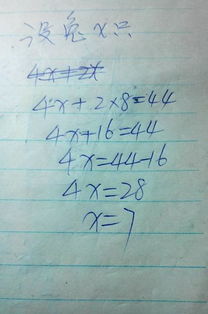 设兔x只
4x+2x
4x+2×8=44
4x+16=44
4x=44-16
4x=28
x=7